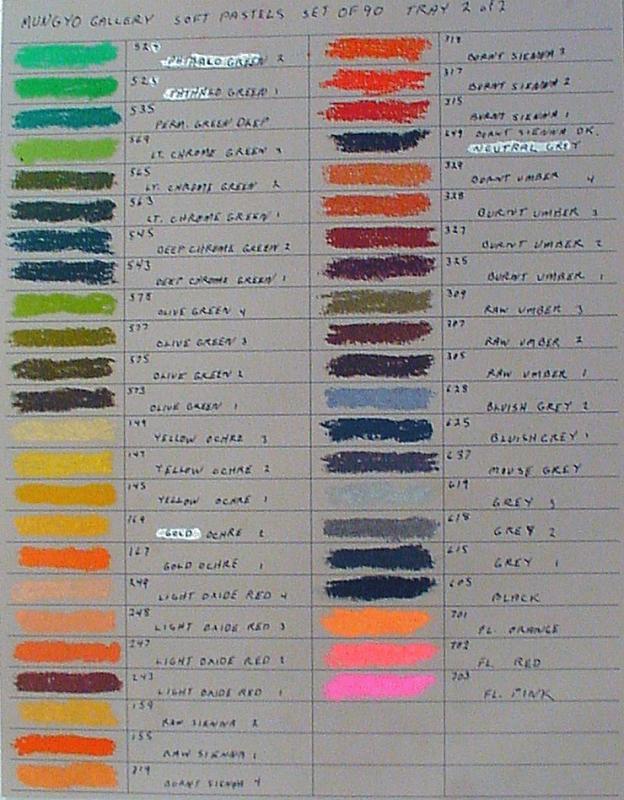 MUNGYO GALLERY SOFT PASTELS SET OF 90 TRAY 2 of 2
PHTHALO GREEN 2
PHTHALO GREEN 1
535
PERM. GREEN DEEP
569
LT. CHROME GREEN 3
565
LT. CHROME GREEN 2
563
LT. CHROME GREEN 1
545
DEEP CHROME GREEN 2
543
DEEP CHROME GREEN 1
578
OLIVE GREEN 4
577
OLIVE GREEN 3
575
OLIVE GREEN 2
573
OLIVE GREEN 1
149
YELLOW OCHRE 3
147
YELLOW OCHRE 2
145
YELLOW OCHRE 1
169
GOLD OCHRE 2
167
GOLD OCHRE 1
249
LIGHT OXIDE RED 4
248
LIGHT OXIDE RED 3
247
LIGHT OXIDE RED 2
243
LIGHT OXIDE RED 1
159
RAW SIENNA 2
155
RAW SIENNA 1
319
BURNT SIENNA 4
318
BURNT SIENNA 3
317
BURNT SIENNA 2
315
BURNT SIENNA 1
649 BURNT SIENNA DK.
NEUTRAL GREY
329
BURNT UMBER 4
328
BURNT UMBER 3
327
BURNT UMBER 2
325
BURNT UMBER 1
309
RAW UMBER 3
307
RAW UMBER 2
305
RAW UMBER 1
628
BLUISH GREY 2
625
BLUISH GREY 1
637
MOUSE GREY
619
GREY 3
618
GREY 2
615
GREY 1
605
BLACK
701
FL. ORANGE
702
FL. RED
703
FL. PINK